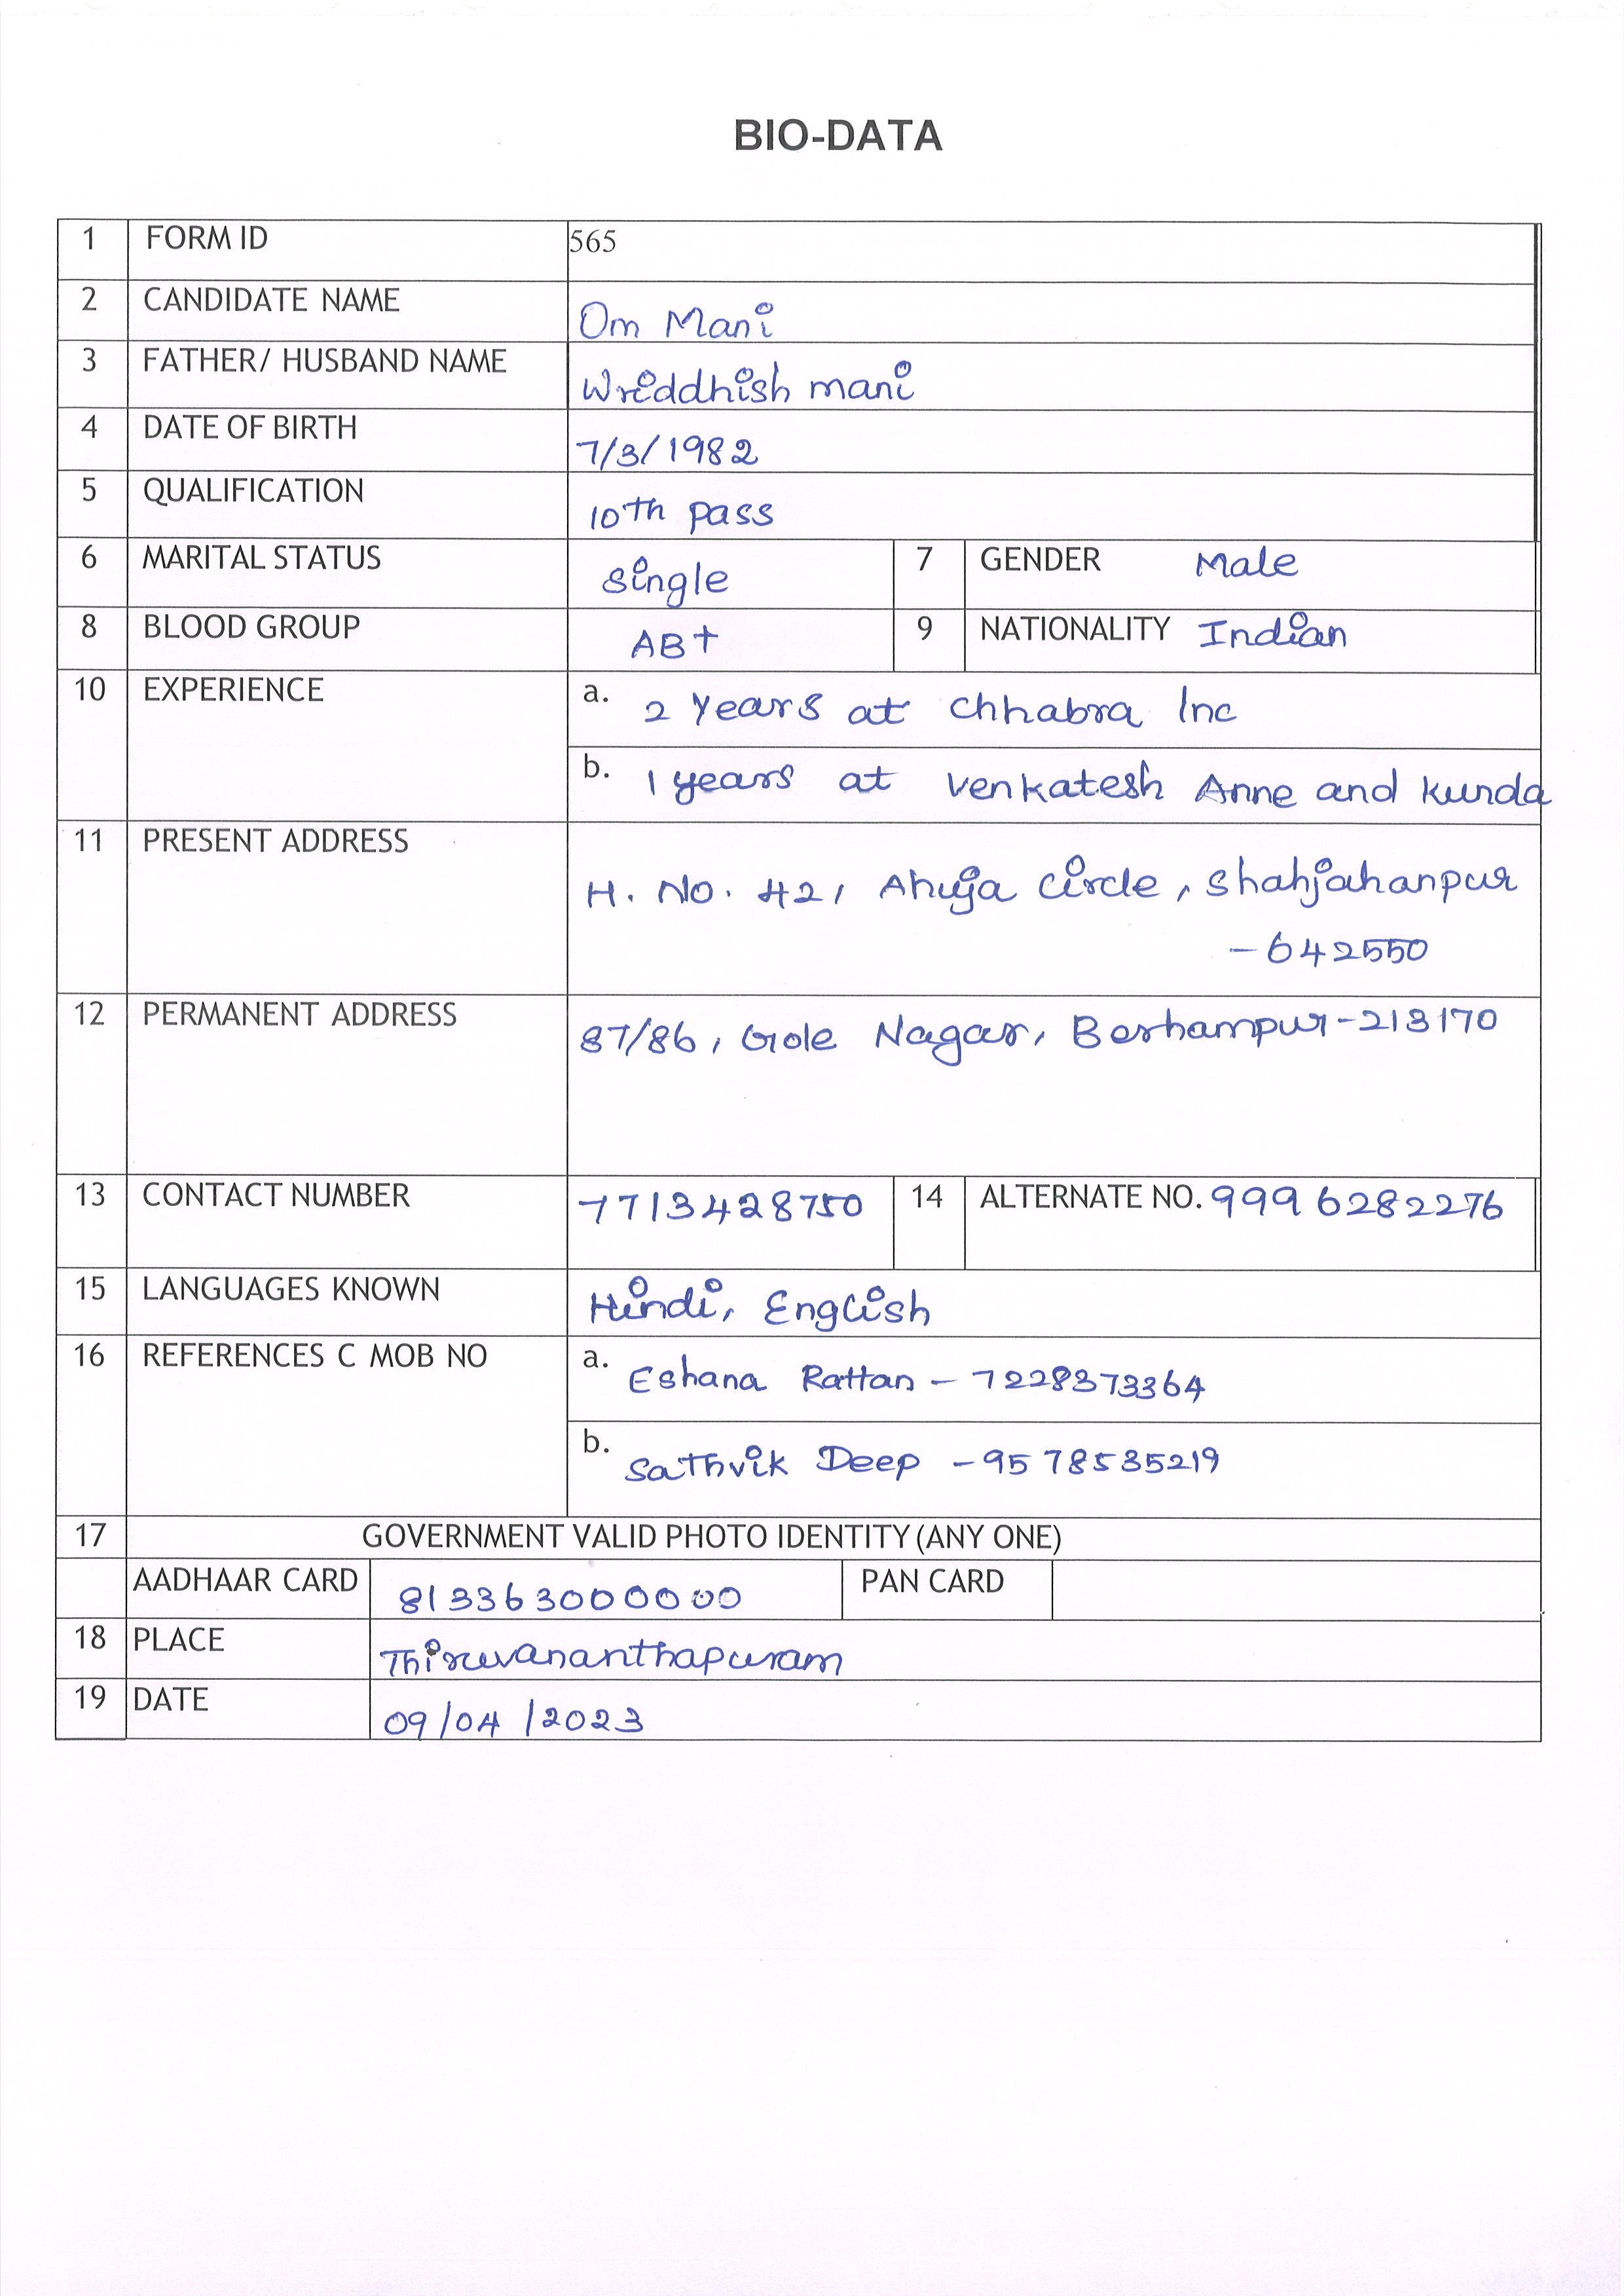 BIO-DATA
1 FORM ID 565
2 CANDIDATE NAME Om Mani
3 FATHER/ HUSBAND NAME Wriddhish mani
4 DATE OF BIRTH 7/3/1982
5 QUALIFICATION 10th pass
6 MARITAL STATUS single 7 GENDER Male
8 BLOOD GROUP AB+ 9 NATIONALITY Indian
10 EXPERIENCE a. 2 years at chhabra Inc
b. 1 years at venkatesh Anne and kunda
11 PRESENT ADDRESS
H. No. 42, Ahuja circle, shahjahanpur
-642550
12 PERMANENT ADDRESS 87/86, Gole Nagar, Berhampur-213170
13 CONTACT NUMBER 7713428750 14 ALTERNATE NO. 9996282276
15 LANGUAGES KNOWN Hindi, English
16 REFERENCES C MOB NO a. Eshana Rattan - 7228373364
b. Sathvik Deep - 9578535219
17 GOVERNMENT VALID PHOTO IDENTITY (ANY ONE)
AADHAAR CARD 813363000000 PAN CARD
18 PLACE Thiruvananthapuram
19 DATE 09/04/2023